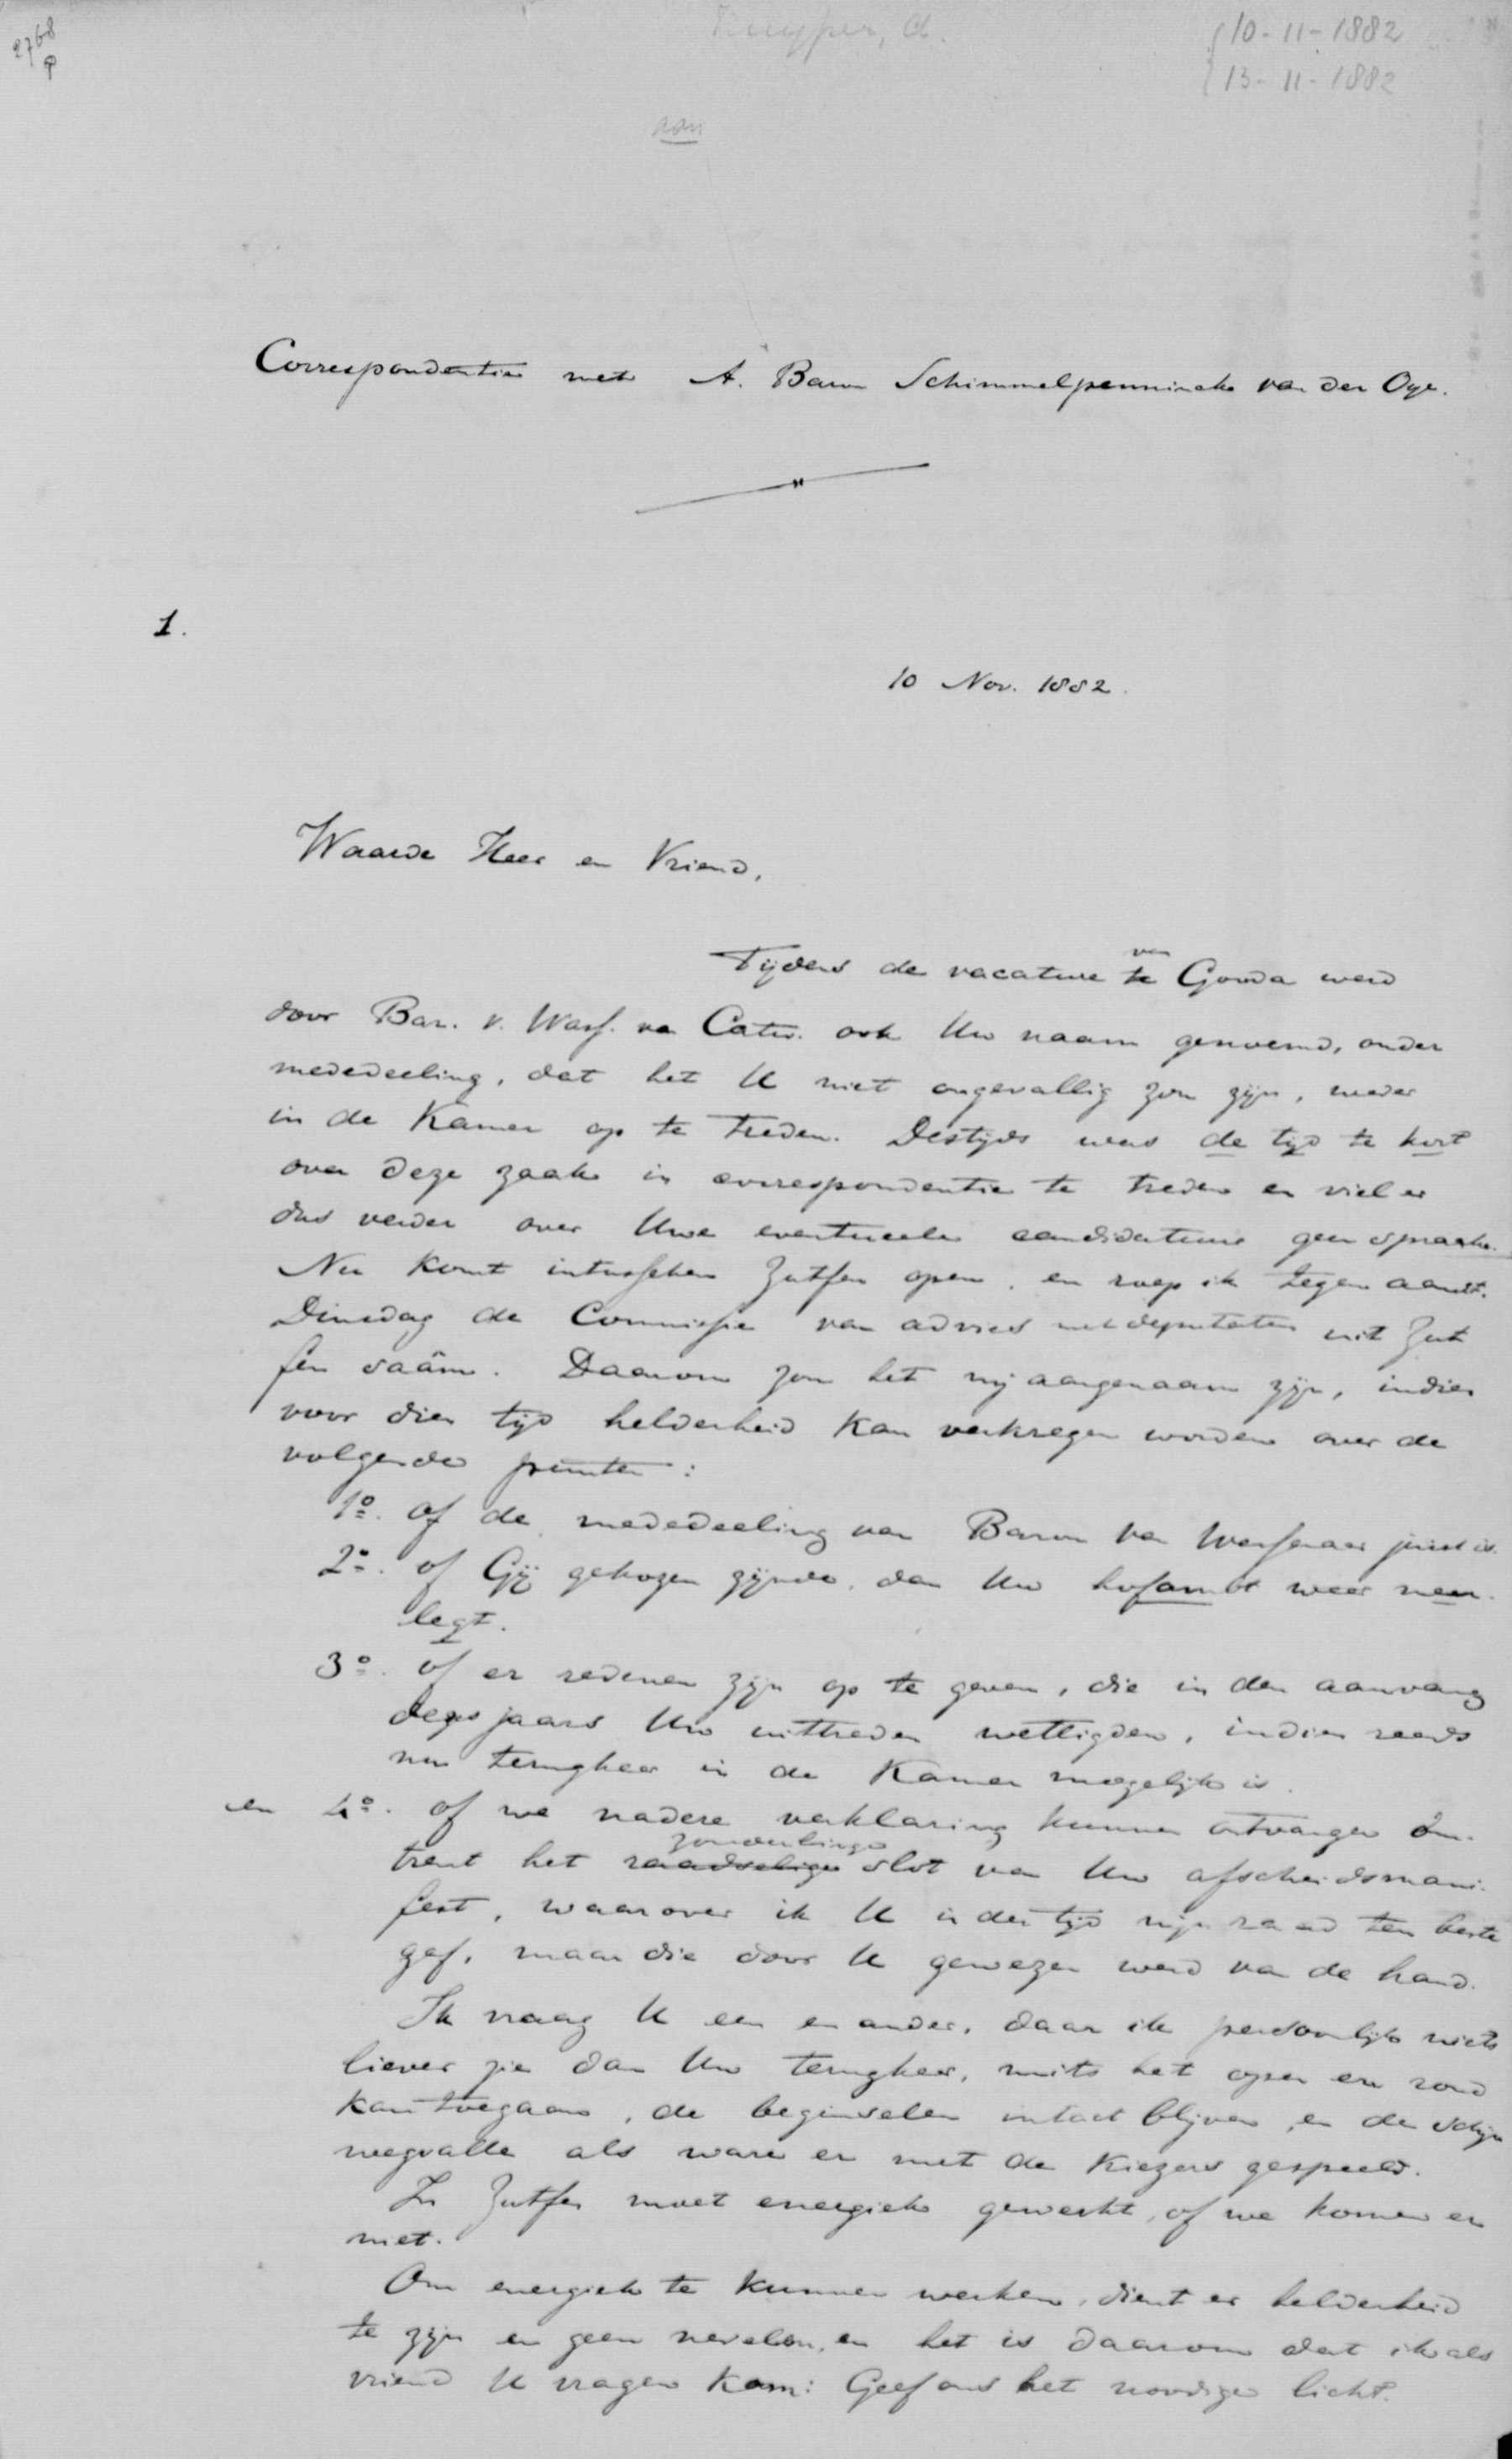 2768
P
Kuyper, A.
10-11-1882
13-11-1882
aan
Correspondentie met A. Baron Schimmelpenninck van der Oye.
1.
10 Nov. 1882.
Waarde Heer en Vriend,
Tijdens de vacature te van Gouda werd
door Bar. v. Wass. van Catw. ook Uw naam genoemd, onder
mededeeling, dat het U niet ongevallig zou zijn, weder
in de Kamer op te treden. Destijds was de tijd te kort
over deze zaak in correspondentie te treden en viel er
dus verder over Uwe eventueele candidatuur geen sprake.
Nu komt intusschen Zutfen open, en roep ik tegen aanst.
Dinsdag de Commissie van advies met deputaten uit Zut
fen saâm. Daarom zou het mij aangenaam zijn, indien
voor dien tijd helderheid kan verkregen worden over de
volgende punten:
1º. of de mededeeling van Baron van Wassenaer juist is.
2º. of Gij gekozen zijnde, dan Uw hofambt weer neer
legt.
3º. of er redenen zijn op te geven, die in den aanvang
dezes jaars Uw uittreden wettigden, indien reeds
nu terugkeer in de Kamer mogelijk is.
en 4º. of we nadere verklaring kunnen ontvangen om-
zonderlinge
trent het raadselige slot van Uw afscheidsmani-
fest, waarover ik U in der tijd mijn raad ten beste
gaf, maar die door U gewezen werd van de hand.
Ik vraag U een en ander, daar ik persoonlijk niets
liever zie dan Uw terugkeer, mits het open en rond
kan toegaan, de beginselen intact blijven, en de schijn
wegvalle als ware er met de Kiezers gespeeld.
In Zutfen moet energiek gewerkt, of we komen er
niet.
Om energiek te kunnen werken, dient er helderheid
te zijn en geen nevelen, en het is daarom dat ik als
vriend U vragen kom: Geef ons het noodige licht.